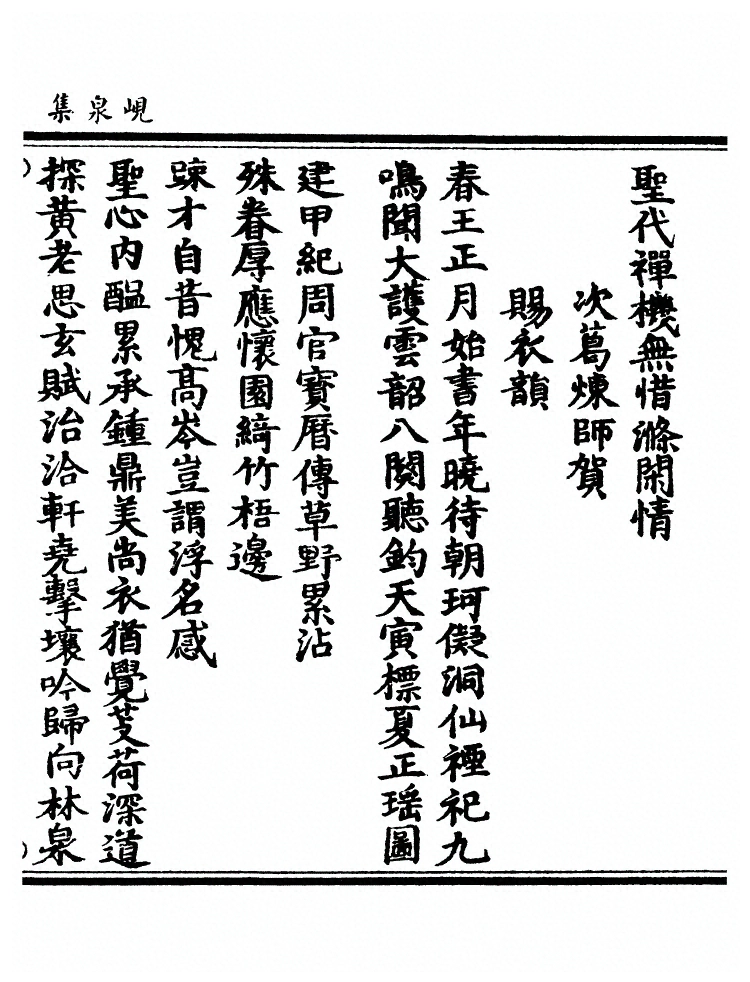 峴泉集
聖代禪機無惜滌閑情
次葛煉師賀
賜衣韻
春王正月始書年曉待朝珂儗洞仙禋祀九
鳴聞大護雲韶八闋聽鈞天寅標夏正瑤圖
建甲紀周官寶曆傳草野累沾
殊眷厚應懷園綺竹梧邊
踈才自昔愧高岑豈謂浮名感
聖心内醞累承鍾鼎美尚衣猶覺芰荷深道
探黃老思玄賦治洽軒堯擊壤吟歸向林泉